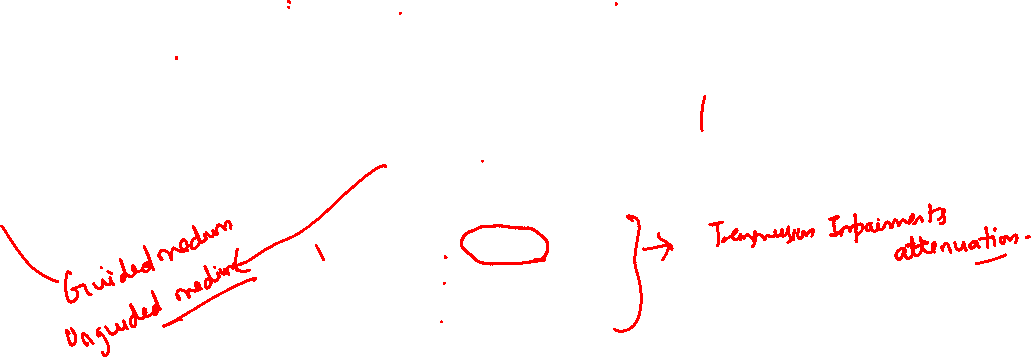 Guided medium
Unguided medium
Transmission Impairments
attenuation.